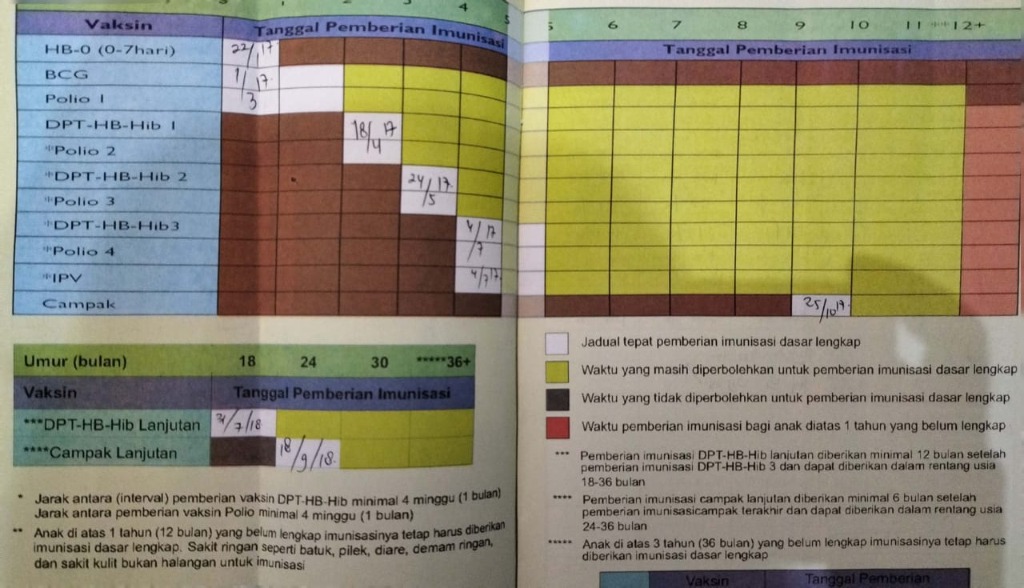 4 5
Vaksin Tanggal Pemberian Imunisasi
HB-0 (0-7hari) 22/1 17
BCG 1/3 17
Polio 1
DPT-HB-Hib 1 18/4 17
*Polio 2
*DPT-HB-Hib 2 24/5 17
*Polio 3
*DPT-HB-Hib3 4/7 17
*Polio 4
*IPV 4/7 17
Campak
5 6 7 8 9 10 11 **12+
Tanggal Pemberian Imunisasi
25/10 17
Umur (bulan) 18 24 30 *****36+
Vaksin Tanggal Pemberian Imunisasi
***DPT-HB-Hib Lanjutan /7/18
****Campak Lanjutan 18/9/18
* Jarak antara (interval) pemberian vaksin DPT-HB-Hib minimal 4 minggu (1 bulan)
Jarak antara pemberian vaksin Polio minimal 4 minggu (1 bulan)
** Anak di atas 1 tahun (12 bulan) yang belum lengkap imunisasinya tetap harus diberikan
imunisasi dasar lengkap. Sakit ringan seperti batuk, pilek, diare, demam ringan,
dan sakit kulit bukan halangan untuk imunisasi
Jadual tepat pemberian imunisasi dasar lengkap
Waktu yang masih diperbolehkan untuk pemberian imunisasi dasar lengkap
Waktu yang tidak diperbolehkan untuk pemberian imunisasi dasar lengkap
Waktu pemberian imunisasi bagi anak diatas 1 tahun yang belum lengkap
*** Pemberian imunisasi DPT-HB-Hib lanjutan diberikan minimal 12 bulan setelah
pemberian imunisasi DPT-HB-Hib 3 dan dapat diberikan dalam rentang usia
18-36 bulan
**** Pemberian imunisasi campak lanjutan diberikan minimal 6 bulan setelah
pemberian imunisasicampak terakhir dan dapat diberikan dalam rentang usia
24-36 bulan
***** Anak di atas 3 tahun (36 bulan) yang belum lengkap imunisasinya tetap harus
diberikan imunisasi dasar lengkap
Vaksin Tanggal Pemberian